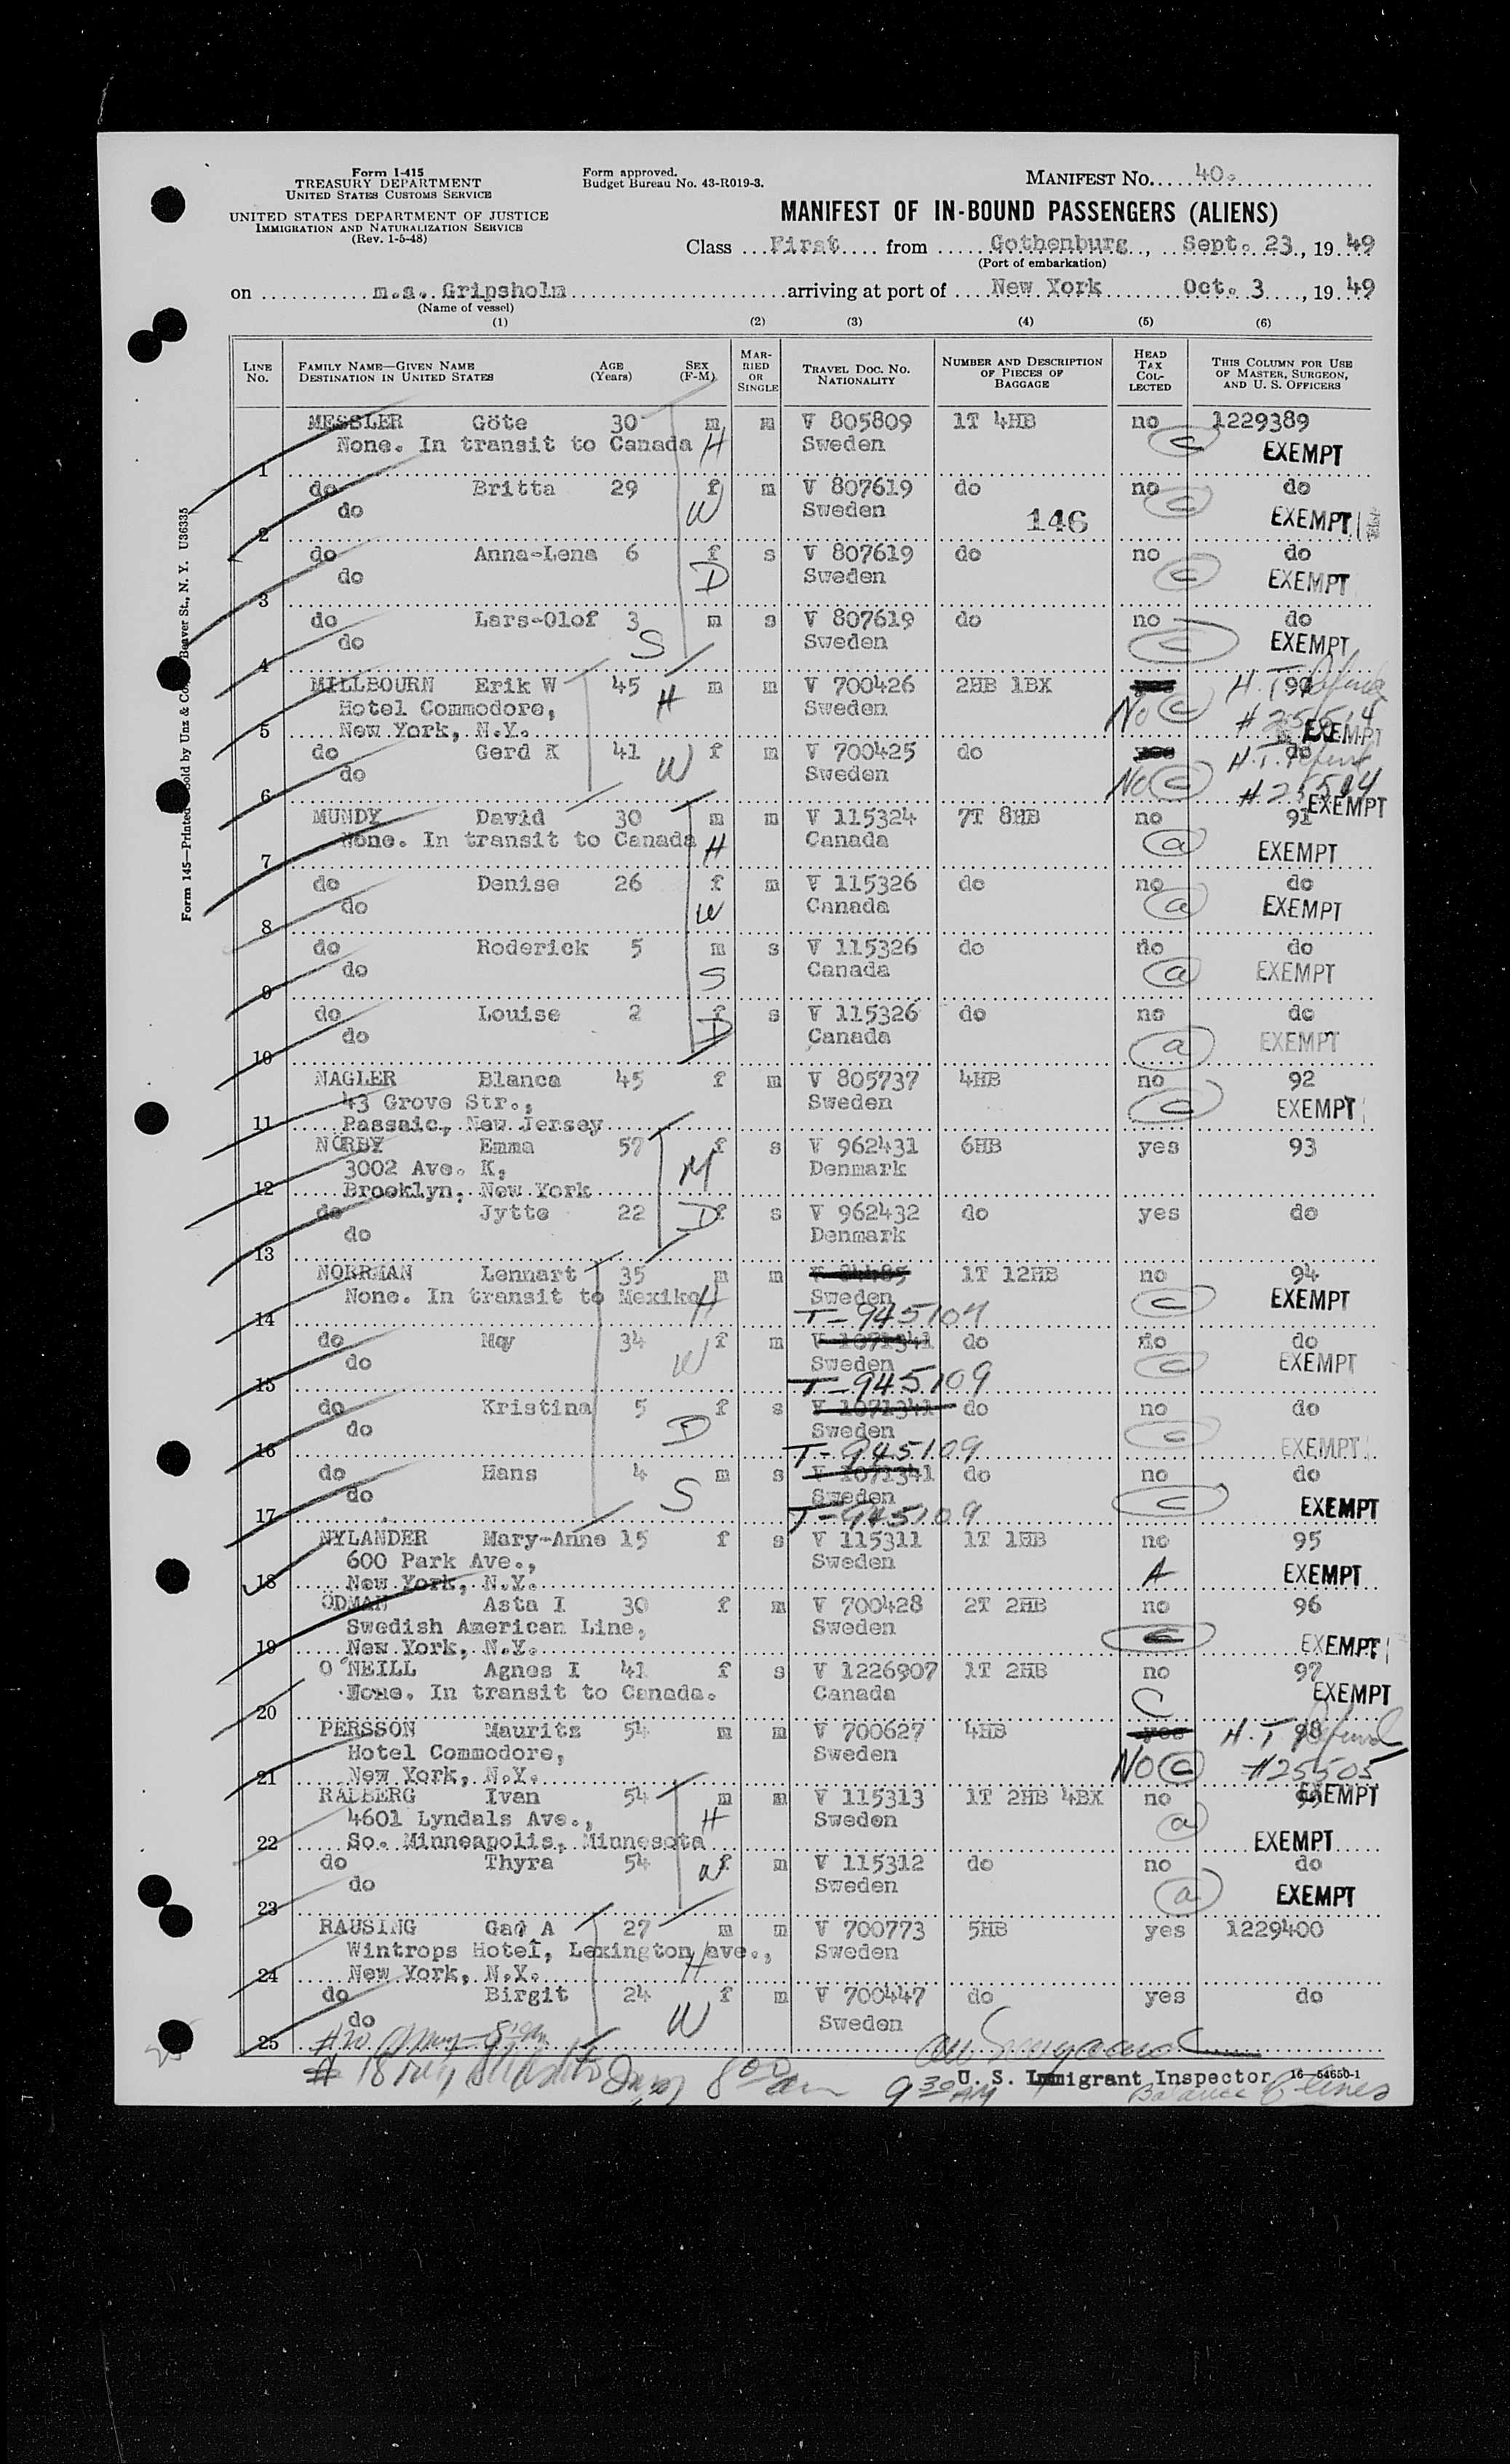 Form I-415
TREASURY DEPARTMENT
UNITED STATES CUSTOMS SERVICE
UNITED STATES DEPARTMENT OF JUSTICE
IMMIGRATION AND NATURALIZATION SERVICE
(Rev. 1-5-48)
Form approved.
Budget Bureau No. 43-R019-3.
MANIFEST No. 40.
MANIFEST OF IN-BOUND PASSENGERS (ALIENS)
Class First from Gothenburg, Sept. 23, 1949
(Port of embarkation)
on m.s. Gripsholm arriving at port of New York Oct. 3, 1949
(Name of vessel)
(1) (2) (3) (4) (5) (6)
LINE No. FAMILY NAME—GIVEN NAME DESTINATION IN UNITED STATES AGE (Years) SEX (F-M) MARRIED OR SINGLE TRAVEL DOC. NO. NATIONALITY NUMBER AND DESCRIPTION OF PIECES OF BAGGAGE HEAD TAX COLLECTED THIS COLUMN FOR USE OF MASTER, SURGEON, AND U. S. OFFICERS
MESSLER Göte 30 m m V 805809 1T 4HB no 1229389
None. In transit to Canada H Sweden C EXEMPT
1
do Britta 29 f m V 807619 do no do
do W Sweden 146 C EXEMPT
2
do Anna-Lena 6 f s V 807619 do no do
do D Sweden C EXEMPT
3
do Lars-Olof 3 m s V 807619 do no do
do S Sweden C EXEMPT
4
MILLBOURN Erik W 45 H m m V 700426 2HB 1BX H.T. Refund 90
Hotel Commodore, Sweden No C # 25514
5 New York, N.Y. EXEMPT
do Gerd K 41 f m V 700425 do yes H.T. Refund do
do W Sweden No C # 25514
6 EXEMPT
MUNDY David 30 m m V 115324 7T 8HB no 91
None. In transit to Canada H Canada a EXEMPT
7
do Denise 26 f m V 115326 do no do
do W Canada a EXEMPT
8
do Roderick 5 m s V 115326 do do do
do S Canada a EXEMPT
9
do Louise 2 f s V 115326 do no do
do D Canada a EXEMPT
10
NAGLER Blanca 45 f m V 805737 4HB no 92
43 Grove Str., Sweden C EXEMPT
11 Passaic, New Jersey
NÖRBY Emma 57 f s V 962431 6HB yes 93
3002 Ave. K, M Denmark
12 Brooklyn, New York
do Jytte 22 D f s V 962432 do yes do
do Denmark
13
NORRMAN Lennart 35 m m 1T 12HB no 94
None. In transit to Mexiko H Sweden C EXEMPT
14 T-945109
do May 34 f m V 1071341 do do do
do W Sweden C EXEMPT
15 T-945109
do Kristina 5 f s V 1071341 do no do
do D Sweden C EXEMPT
16 T-945109
do Hans 4 m s V 1071341 do no do
do S Sweden C EXEMPT
17 T-945109
NYLANDER Mary-Anne 15 f s V 115311 1T 1HB no 95
600 Park Ave., Sweden A EXEMPT
18 New York, N.Y.
ÖDMAN Asta I 30 f m V 700428 2T 2HB no 96
Swedish American Line, Sweden C
19 New York, N.Y. EXEMPT
O'NEILL Agnes I 41 f s V 1226907 1T 2HB no 97
None. In transit to Canada. Canada C EXEMPT
20
PERSSON Maurits 54 m m V 700627 4HB yes H.T. Refund 98
Hotel Commodore, Sweden No C #25505
21 New York, N.Y. EXEMPT
RALBERG Ivan 54 m m V 115313 1T 2HB 4BX no 99
4601 Lyndals Ave., H Sweden a
22 So. Minneapolis, Minnesota EXEMPT
do Thyra 54 W f m V 115312 do no do
do Sweden a EXEMPT
23
RAUSING Gad A 27 m m V 700773 5HB yes 1229400
Wintrops Hotel, Lexington ave., H Sweden
24 New York, N.Y.
do Birgit 24 f m V 700447 do yes do
do W Sweden
25
# 18 8 00 am 9 30 AM U. S. Immigrant Inspector 16—54650-1
Balance 6 lines
Form 145—Printed Sold by Unz & Co. Beaver St., N. Y. U36335